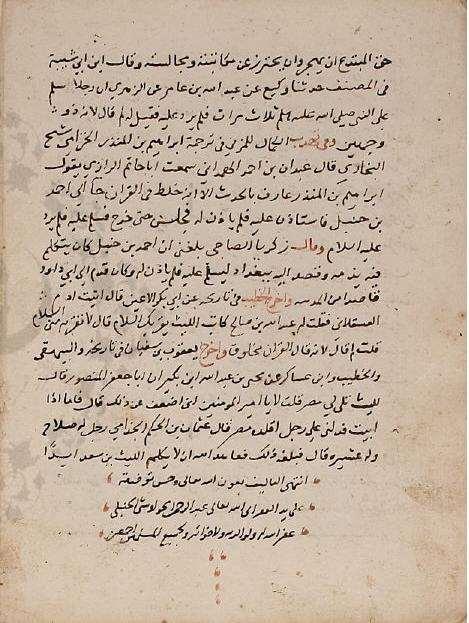 حق المبتدع ان يهجر وان يحترز عن مكاتبته ومجالسته وقال ابن ابي شيبة
في المصنف حدثنا وكيع عن عبد الله بن عامر عن الزهري ان رجلا سلم
على النبي صلى الله عليه وسلم ثلاث مرات فلم يرد عليه فقيل له لم قال لانه ذو
وجهين وفي تهذيب الكمال للمزي في ترجمة ابراهيم بن المنذر الحزامي شيخ
البخاري قال عبدان بن احمد الهمداني سمعت ابا حاتم الرازي يقول
ابراهيم بن المنذر عارف بالحديث الا انه خلط في القران جا الى احمد
بن حنبل فاستاذن عليه فلم ياذن له فجلس حتى خرج فسلم عليه فلم يرد
عليه السلام وقال زكريا الساجي بلغني ان احمد بن حنبل كان يتكلم
فيه يذمه وقصد اليه ببغداد ليسلم عليه فلم ياذن له وكان قدم الى ابن ابي داود
قاصدا من المدينة واخرج الخطيب في تاريخه عن ابي بكر الاعين قال اتيت ادم
العسقلاني فقلت له عبد الله بن صالح كاتب الليث يقريك السلام قال لا تقريه مني السلام
قلت لم قال لانه قال القران مخلوق واخرج يعقوب بن سفيان في تاريخه والبيهقي
والخطيب وابن عساكر عن يحيى بن عبد الله ابن بكير ان ابا جعفر المنصور قال
لليث تلي لي مصر قلت لا يا امير المومنين اني اضعف عن ذلك قال فاما اذا
ابيت فدلني على رجل اقلده مصر قال عثمان بن الحكم الجذامي رجل له صلاح
وله عشيرة قال فبلغه ذلك فعاهد الله ان لا يكلم الليث بن سعد ابدا
انتهى التاليف بعون الله تعالى وحسن توفيقه
على يد الفقير الى الله تعالى عبد الرحمن الحنبلي
غفر الله له ولوالديه ولاخوانه ولجميع المسلمين اجمعين